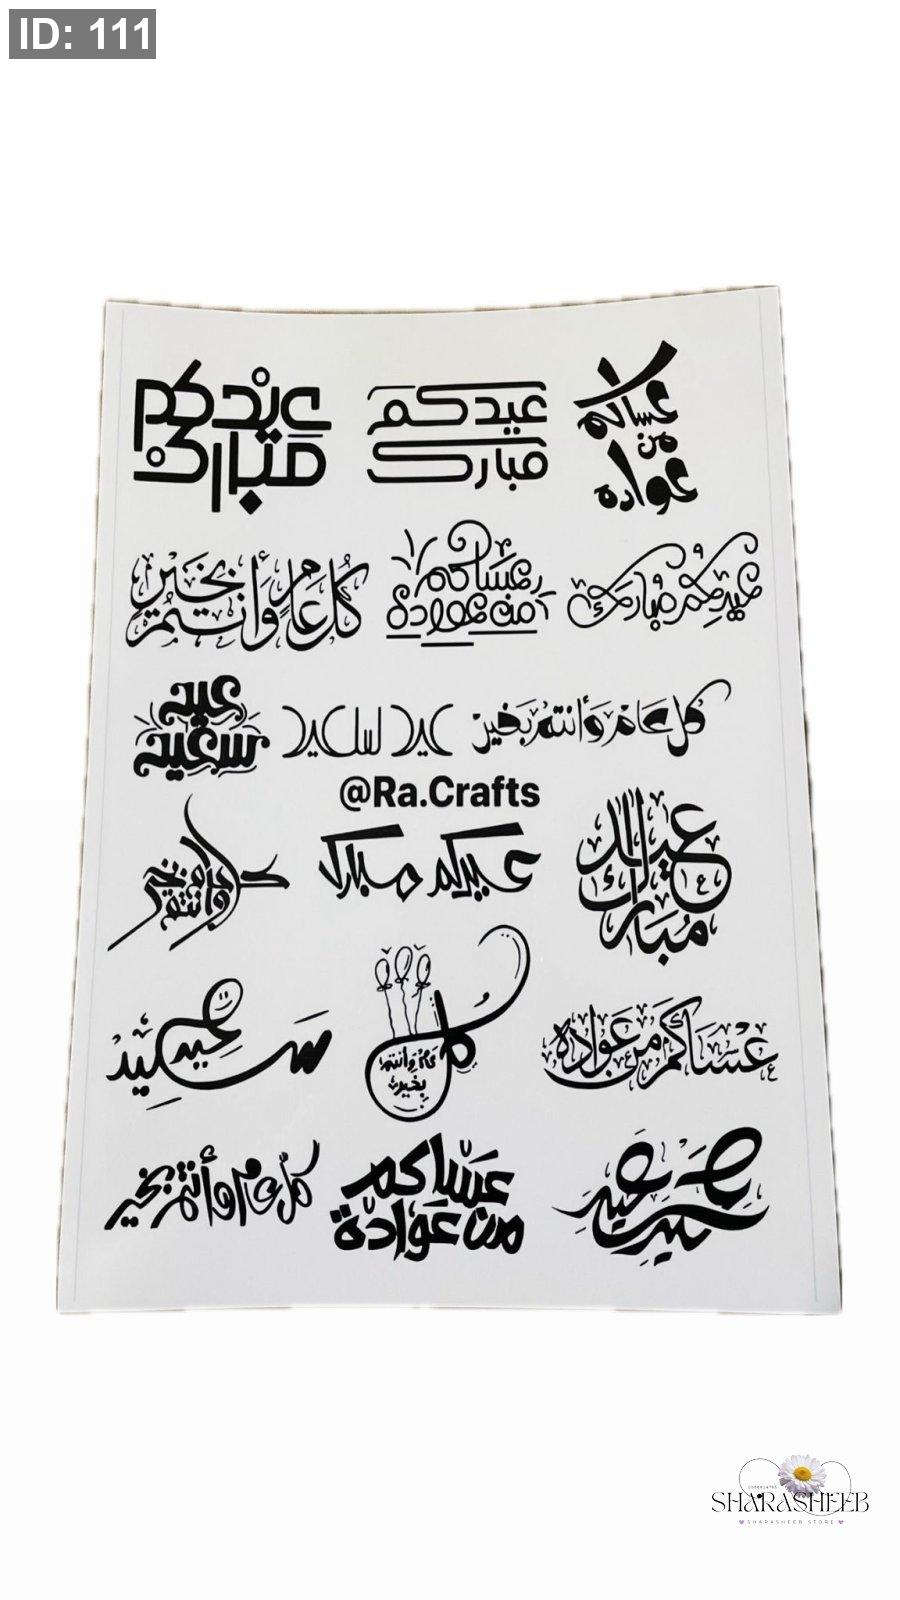 ID: 111
عساكم
من
عواده
عيدكم
مبارك
عيدكم
مبارك
عيدكم مبارك
عساكم
من عواده
كل عام وأنتم بخير
كل عام وأنتم بخير
عيد سعيد
عيد
سعيد
@Ra.Crafts
عيدك
مبارك
عيدكم مبارك
كل عام وأنتم بخير
عساكم من عواده
كل
عام وأنتم
بخير
عيد سعيد
عيد سعيد
عساكم
من عوادة
كل عام وأنتم بخير
SHARASHEEB
SHARASHEEB STORE